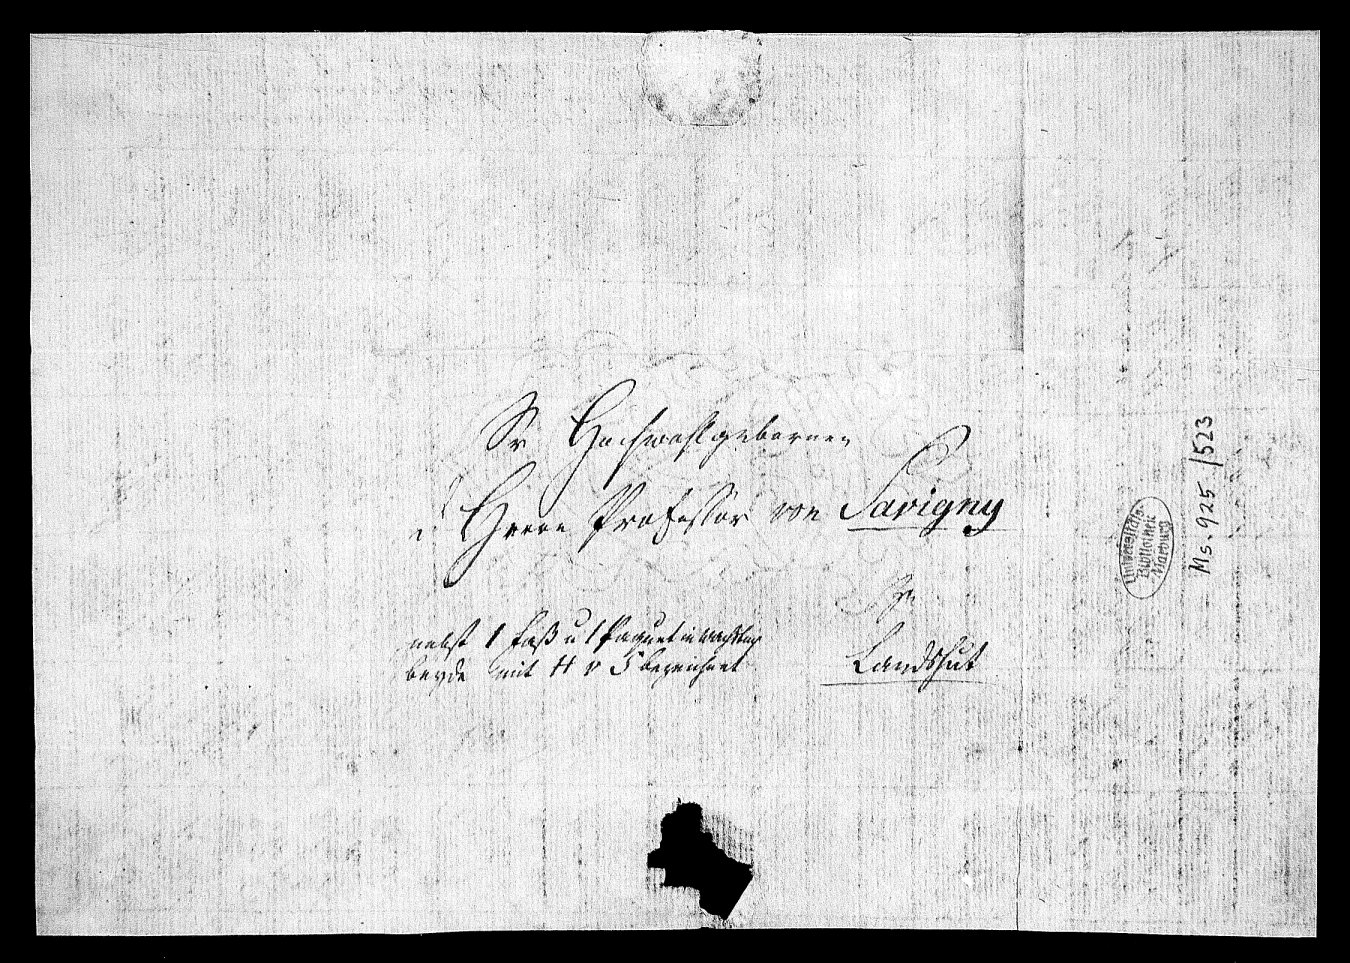 Sr Hochwohlgebornen
d Herrn Professor von Savigny
in
Landshut
nebst 1 Faß u 1 Paquet in Wachstuch
beyde mit H v S bezeichnet
Universitäts-
Bibliothek
Marburg
Ms. 925/523